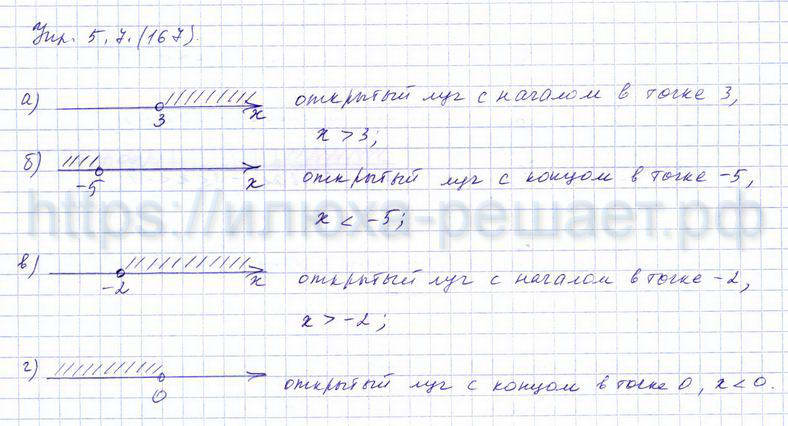 Упр. 5.7.(167).
а) 3 x открытый луч с началом в точке 3,
x > 3;
б) -5 x открытый луч с концом в точке -5,
x < -5;
https://илюха-решает.рф
в) -2 x открытый луч с началом в точке -2,
x > -2;
г) 0 открытый луч с концом в точке 0, x < 0.